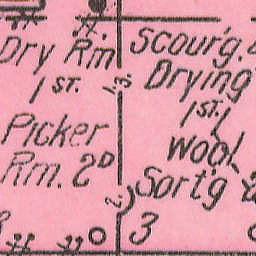 Dry Rm
1ST.
Picker
Rm. 2D
Scour'g.
Drying
1ST.
Wool
Sort'g
3
13.
2.